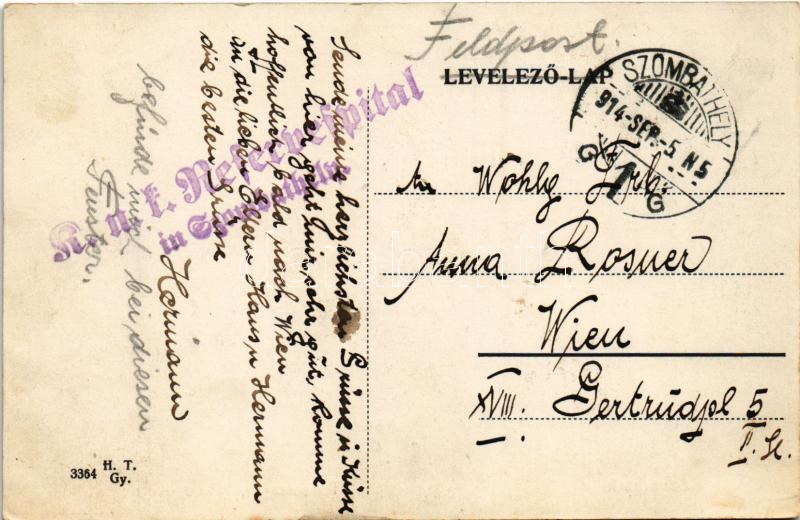 Feldpost.
LEVELEZŐ-LAP
SZOMBATHELY
914-SEP.-5. N5
G 1 G
An Wohlg Frl.
Anna Rosner
Wien
XVIII. Gertrudpl 5
II. St.
Sende meine herzlichsten Grüsse u Küsse
von hier, geht mir sehr gut, komme
hoffentlich bald nach Wien
An die lieben Eltern Hans u Hermann
die besten Grüsse
Hermann
K. u. k. Reservespital
in Szombathely
befinde mich bei diesen
Fenster.
3364 H. T.
Gy.